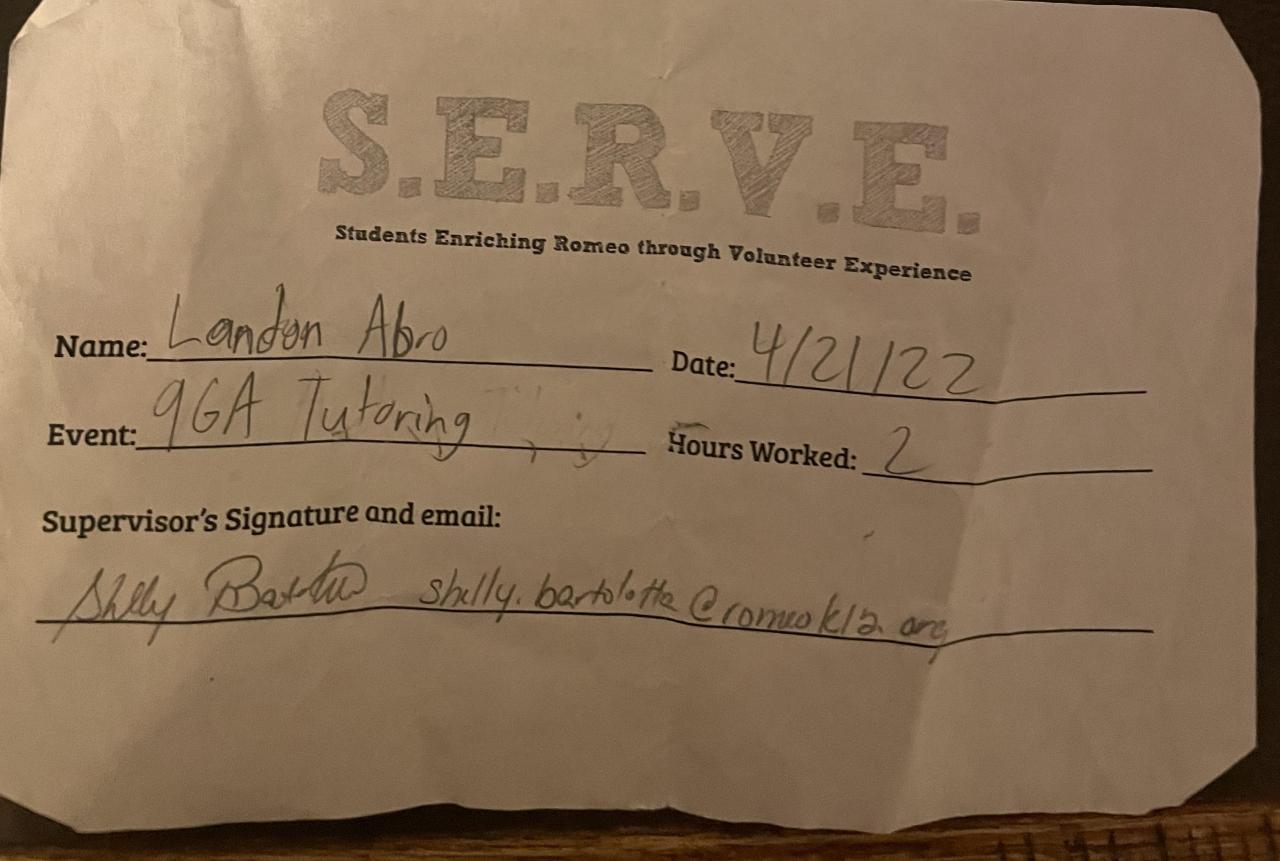 S.E.R.V.E.
Students Enriching Romeo through Volunteer Experience
Name: Landon Abro Date: 4/21/22
Event: 9GA Tutoring Hours Worked: 2
Supervisor's Signature and email:
Shelly shelly.bartolotta@romeok12.org